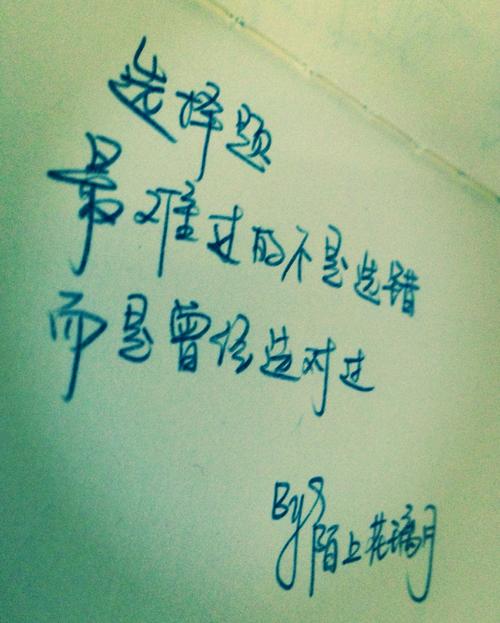 选择题
最难过的不是选错
而是曾经选对过
By 陌上花璃月